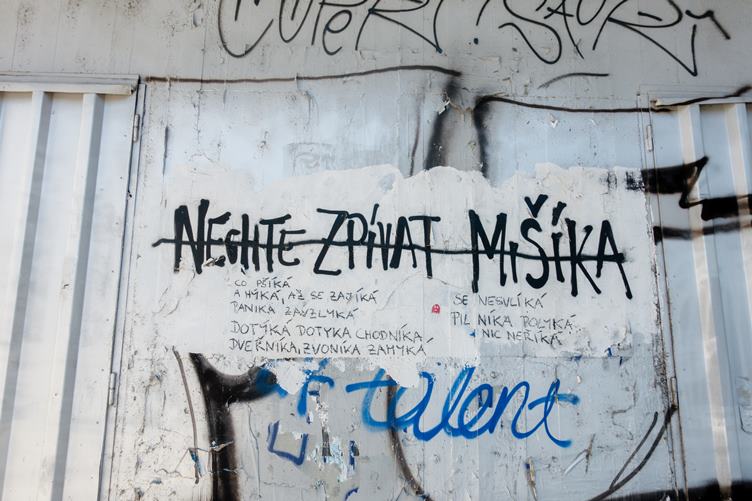 NECHTE ZPÍVAT MIŠÍKA
CO PŠÍKÁ
A HÝKÁ, AŽ SE ZAJÍKÁ
PANIKA ZAVZLYKÁ
DOTÝKÁ DOTYKA CHODNÍKA
DVEŘNÍKA, ZVONÍKA ZAMYKÁ
SE NESVLÍKÁ
PIL NIKA POLYKÁ
NIC NEŘÍKÁ
talent